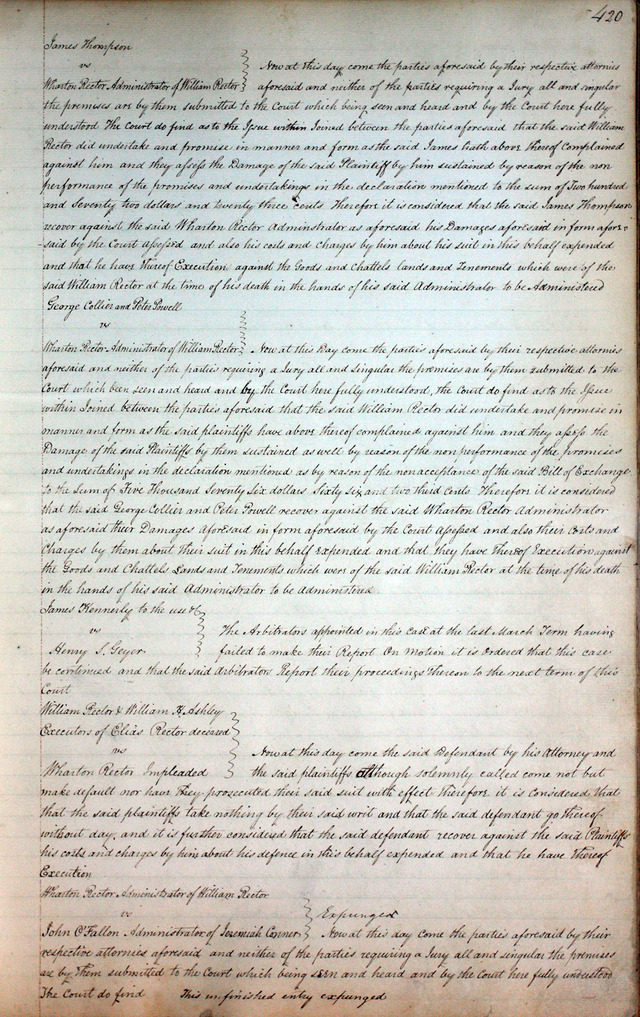 420
James Thompson
vs
Wharton Rector Administrator of William Rector
Now at this day come the parties aforesaid by their respective attornies
aforesaid and neither of the parties requiring a Jury all and singular
the premises are by them submitted to the Court which being seen and heard and by the Court here fully
understood The Court do find as to the Issue within Joined between the parties aforesaid that the said William
Rector did undertake and promise in manner and form as the said James hath above thereof Complained
against him and they assess the Damage of the said Plaintiff by him sustained by reason of the non
performance of the promises and undertakings in the declaration mentioned to the sum of Two hundred
and Seventy two dollars and twenty three cents Therefore it is considered that the said James Thompson
recover against the said Wharton Rector Adminstrator as aforesaid his Damages aforesaid in form afore=
said by the Court Assessed and also his costs and charges by him about his suit in this behalf expended
and that he have thereof Execution against the Goods and Chattels Lands and Tenements which were of the
said William Rector at the time of his death in the hands of his said Administrator to be Administered
George Collier and Peter Powell
vs
Wharton Rector Administrator of William Rector
Now at this Day come the parties aforesaid by their respective attornies
aforesaid and neither of the parties requiring a Jury all and singular the premises are by them submitted to the
Court which been seen and heard and by the Court here fully understood, the Court do find as to the Issue
within Joined between the parties aforesaid that the said William Rector did undertake and promise in
manner and form as the said plaintiffs have above thereof complained against him and they assess the
Damage of the said Plaintiffs by them sustained as well by reason of the non performance of the promises
and undertakings in the declaration mentioned as by reason of the nonacceptance of the said Bill of Exchange
to the Sum of Five Thousand Seventy Six dollars Sixty Six and two third Cents Therefore it is considered
that the said George Collier and Peter Powell recover against the said Wharton Rector Administrator
as aforesaid their Damages aforesaid in form aforesaid by the Court Assessed and also their Costs and
Charges by them about their suit in this behalf Expended and that they have thereof Execution against
the Goods and Chattels Lands and Tenements which were of the said William Rector at the time of his death
in the hands of his said Administrator to be administered
James Kennerly to the use &c
vs
Henry S. Geyer
The Arbitrators appointed in this case at the last March Term having
failed to make their Report On Motion it is Ordered that this case
be continued and that the said Arbitrators Report their proceedings thereon to the next term of this
Court
William Rector & William H. Ashley
Executors of Elias Rector deceased
vs
Wharton Rector Impleaded
Now at this day come the said Defendant by his Attorney and
the said plaintiffs although solemnly called come not but
make default nor have they prosecuted their said suit with effect Therefore it is considered that
that the said plaintiffs take nothing by their said writ and that the said defendant go thereof
without day, and it is further considered that the said defendant recover against the said Plaintiffs
his costs and charges by him about his defence in this behalf expended and that he have thereof
Execution
Wharton Rector Administrator of William Rector
vs
Expunged
John O'Fallon Administrator of Jeremiah Conner
Now at this day come the parties aforesaid by their
respective attornies aforesaid and neither of the parties requiring a Jury all and singular the premises
are by them submitted to the Court which being seen and heard and by the Court here fully understood
The Court do find This unfinished entry expunged